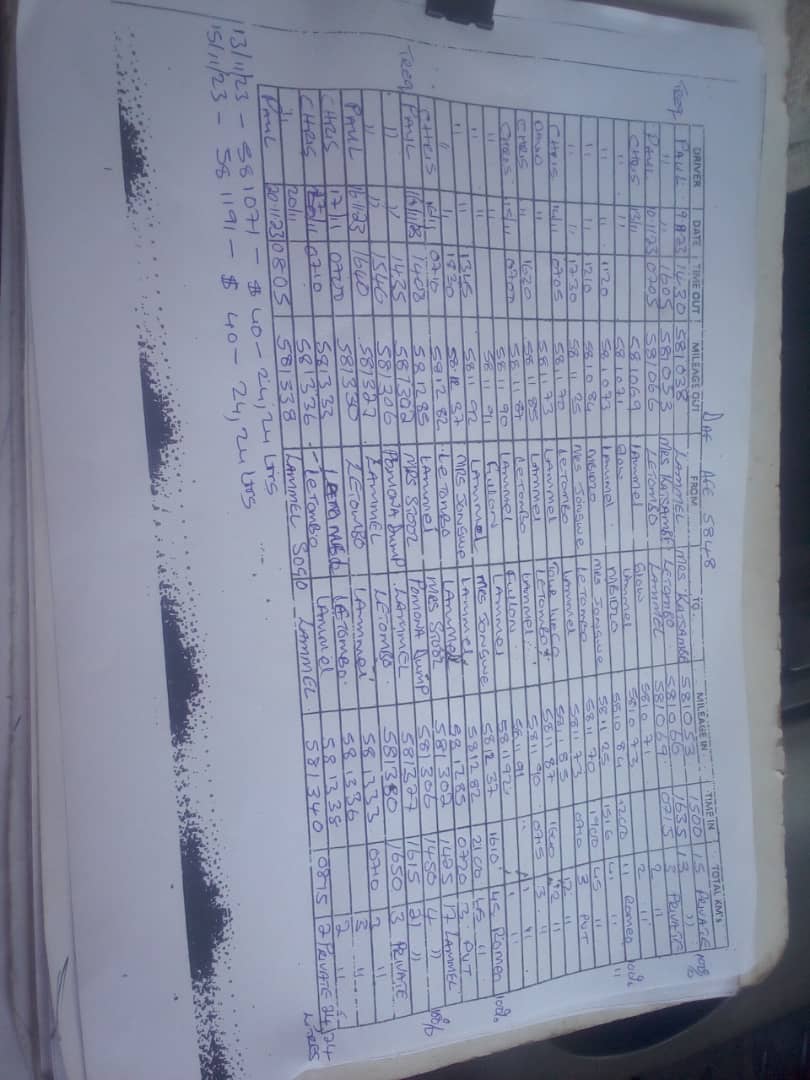 DAF AFE 5848
DRIVER DATE TIME OUT MILEAGE OUT FROM TO. MILEAGE IN TIME IN TOTAL KM's
Treq PAUL 9 11 23 1430 581038 LAMMEL MRS KATSAMBE 581053 1500 15 PRIVATE 100%
" " 1605 581053 MRS KATSAMBE LETOMBO 581066 1635 13 "
PAUL 10.11.23 0705 581066 LETOMBO LAMMEL 581069 0715 3 PRIVATE
CHRIS 13/11 581069 Lammel Glow 581071 2 "
" " 581071 Glow Lammel 581073 2 "
" " 1120 581073 Lammel MBIDZO 581084 1200 11 Romeo 100%
" " 1210 581084 MBIDZO Mrs Jongwe 581125 1516 41 "
" " 1730 581125 Mrs Jongwe Letombo 581170 1900 45 "
CHRIS 14/11 0705 581170 LETOMBO Lammel 581173 0710 3 PVT
DAVID " 581173 LAMMEL 581185 12 "
CHRIS " 1620 581185 LAMMEL LETOMBO 581187 1640 2 "
CHRIS 15/11 0700 581187 LETOMBO LAMMEL 581190 0715 3 "
" " 581190 LAMMEL Fullon 581191 1 "
" " 581191 Fullon LAMMEL 581192 1 "
" " 1345 581192 LAMMEL MRS JONGWE 581237 1610 45 Romeo 100%
" " 1830 581237 MRS JONGWE LAMMEL 581282 2100 45 "
CHRIS 16/11 0710 581282 LETOMBO LAMMEL 581285 0720 3 PVT
Treq PAUL 16/11/23 1408 581285 LAMMEL MRS 581302 1425 17 LAMMEL
" " 1435 581302 MRS POMONA DUMP 581306 1450 4 " 100%
" " 1546 581306 POMONA DUMP LAMMEL 581327 1615 21 "
PAUL 16.11.23 1640 581327 LAMMEL LETOMBO 581330 1650 3 PRIVATE
CHRIS 17/11 0700 581330 LETOMBO LAMMEL 581333 0710 3 "
CHRIS 17/11 581333 LETOMBO 581336 3 "
" 20/11 0710 581336 Letombo LAMMEL 581338 2 "
PAUL 20.11.23 0805 581338 LAMMEL LAMMEL 581340 0815 2 PRIVATE 24,24 LITRES
13/11/23 - 581071 - $ 40 - 24,24 LTRS
15/11/23 - 581191 - $ 40 - 24,24 LTRS